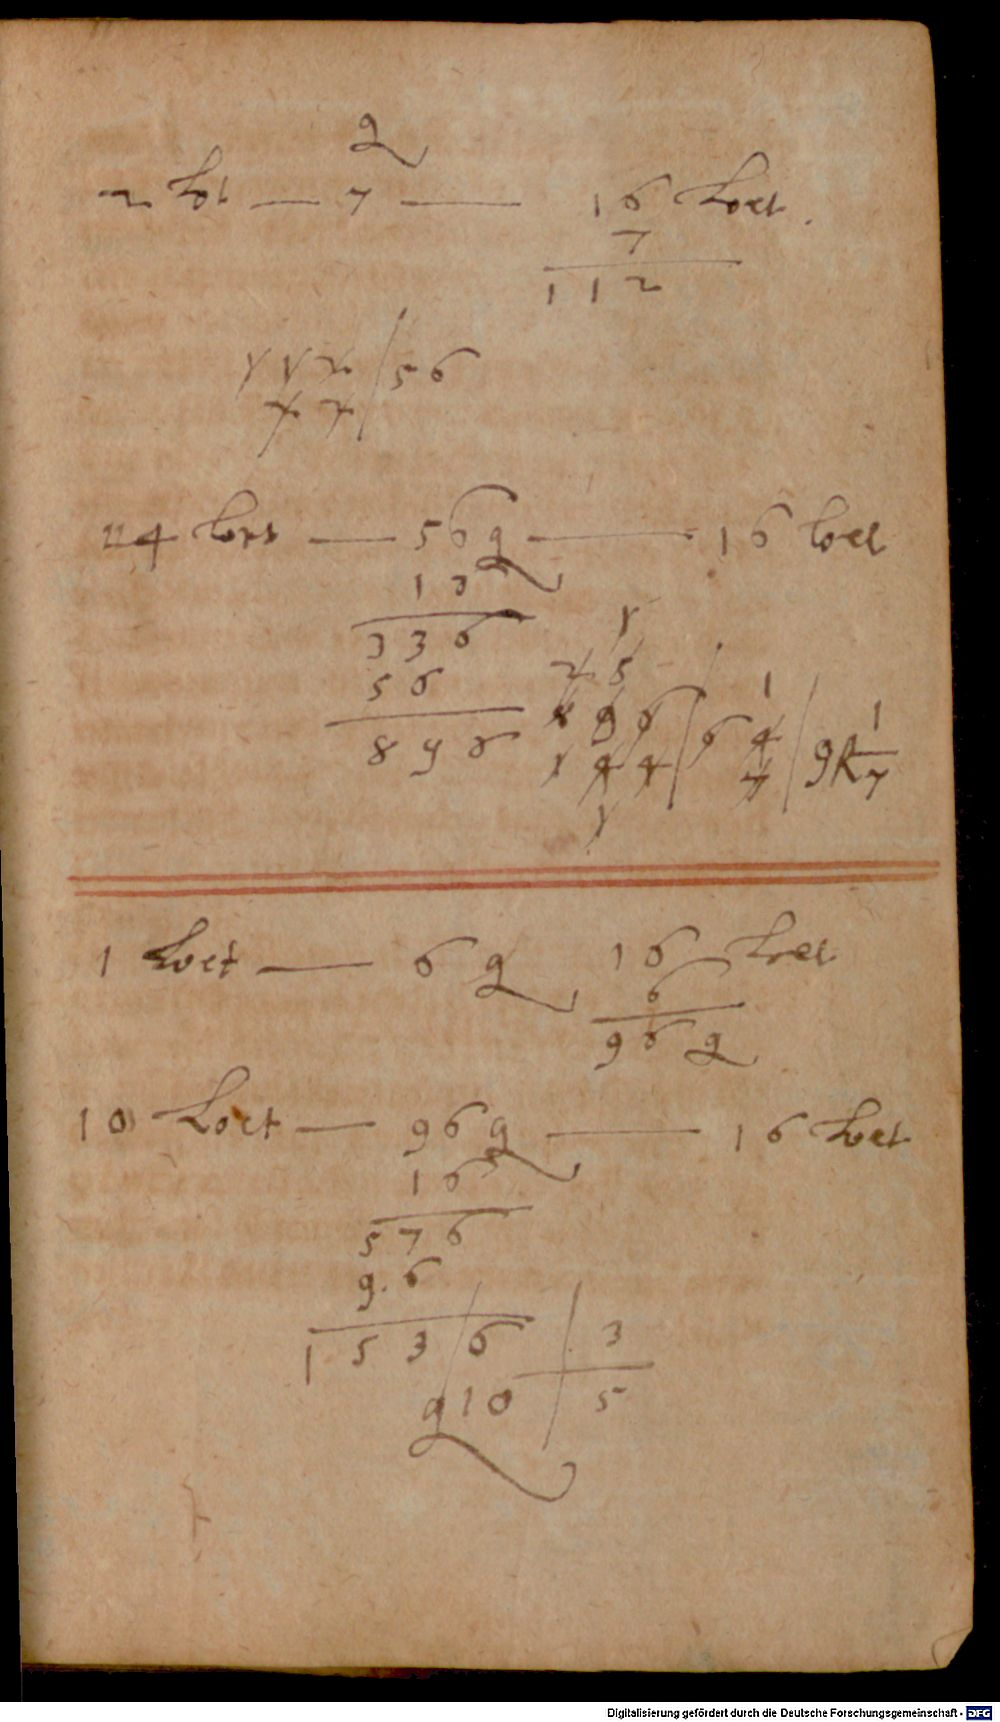 q
2 Lot — 7 — 16 Loet.
7
112
112 / 56
22
14 Loet — 56 q — 16 loet
16
336 1
56 25 1
896 896 / 64 / 9 R 1/7
144 7
1
1 Loet — 6 q 16 Loet
6
96 q
10 Loet — 96 q — 16 Loet
16
576
9.6
153/6 3
q 10 5
Digitalisierung gefördert durch die Deutsche Forschungsgemeinschaft - DFG